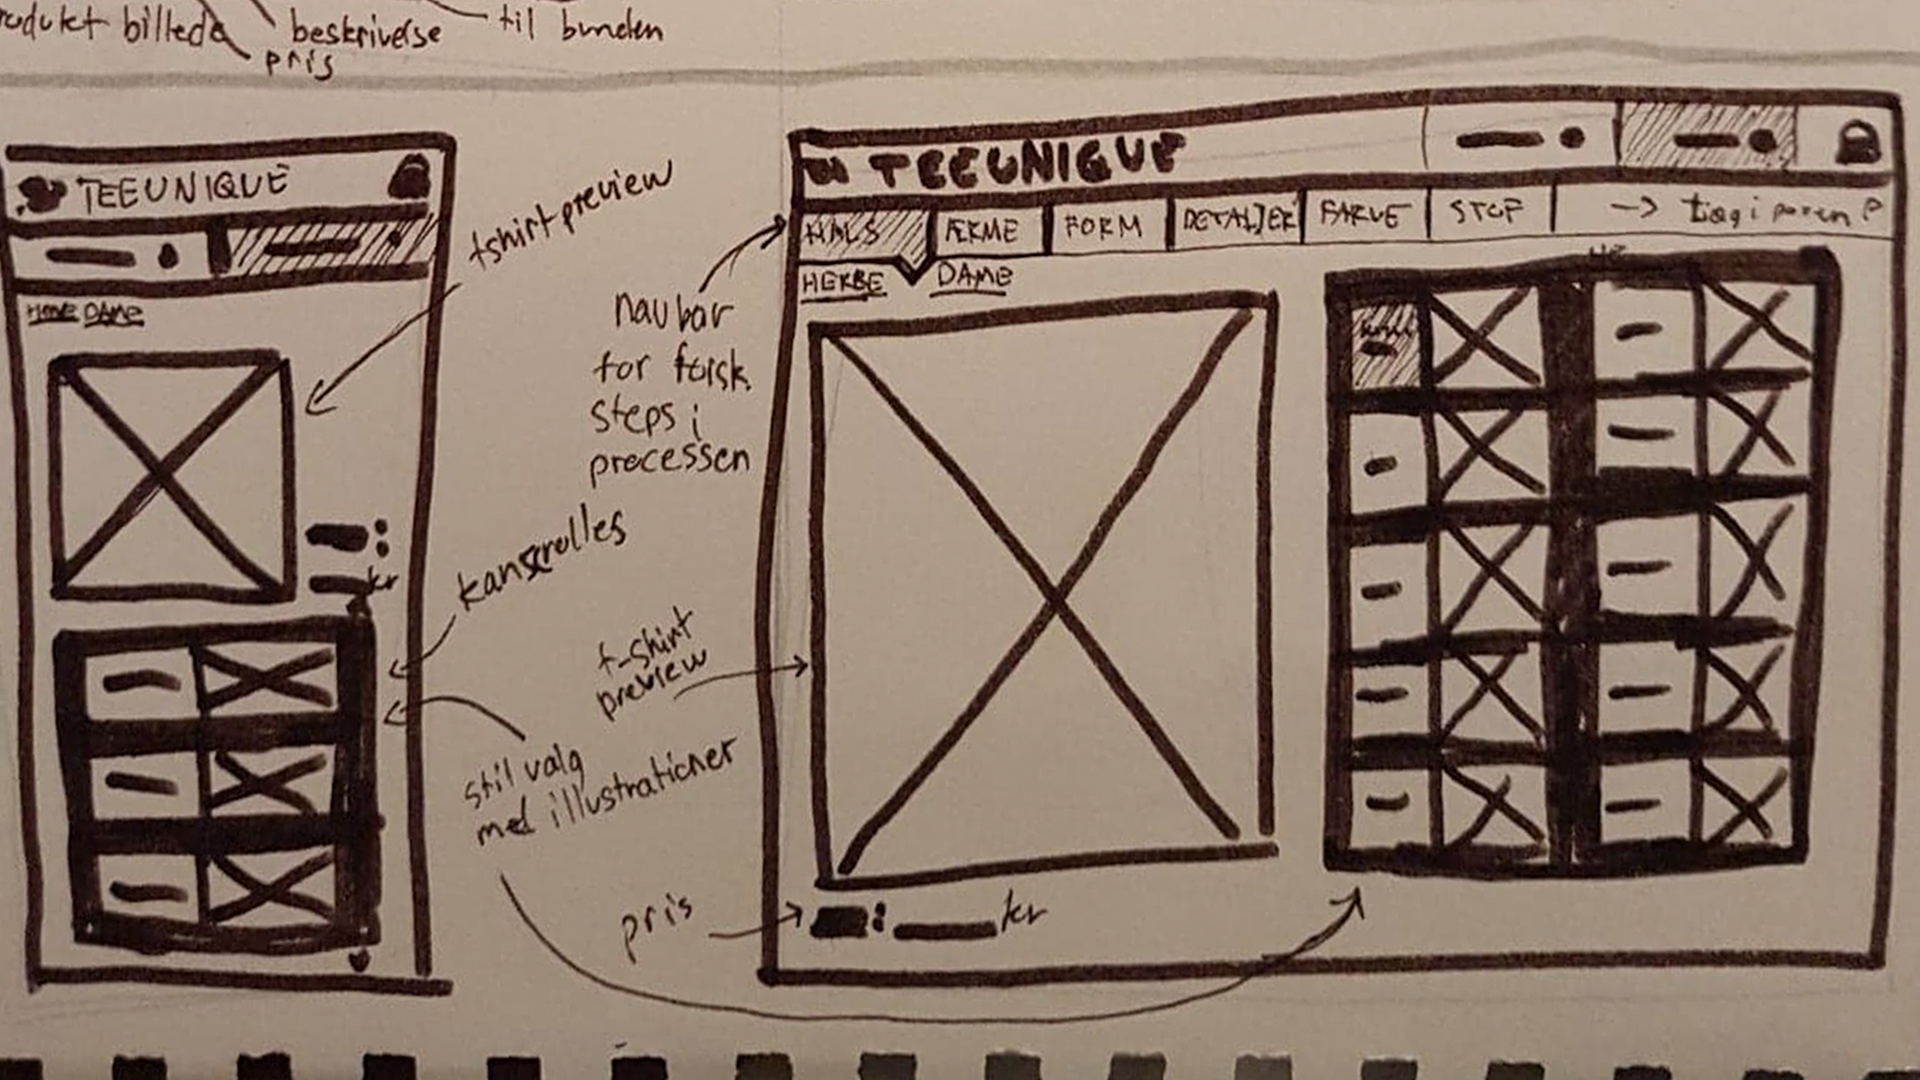 produkt billede
beskrivelse
til bunden
pris
TEEUNIQUE
HERRE DAME
kr
tshirt preview
kan scrolles
stil valg
med illustrationer
navbar
for forsk.
steps i
processen
t-shirt
preview
pris
TEEUNIQUE
HALS ÆRME FORM DETALJER FARVE STOF -> Læg i kurven
HERRE DAME
kr